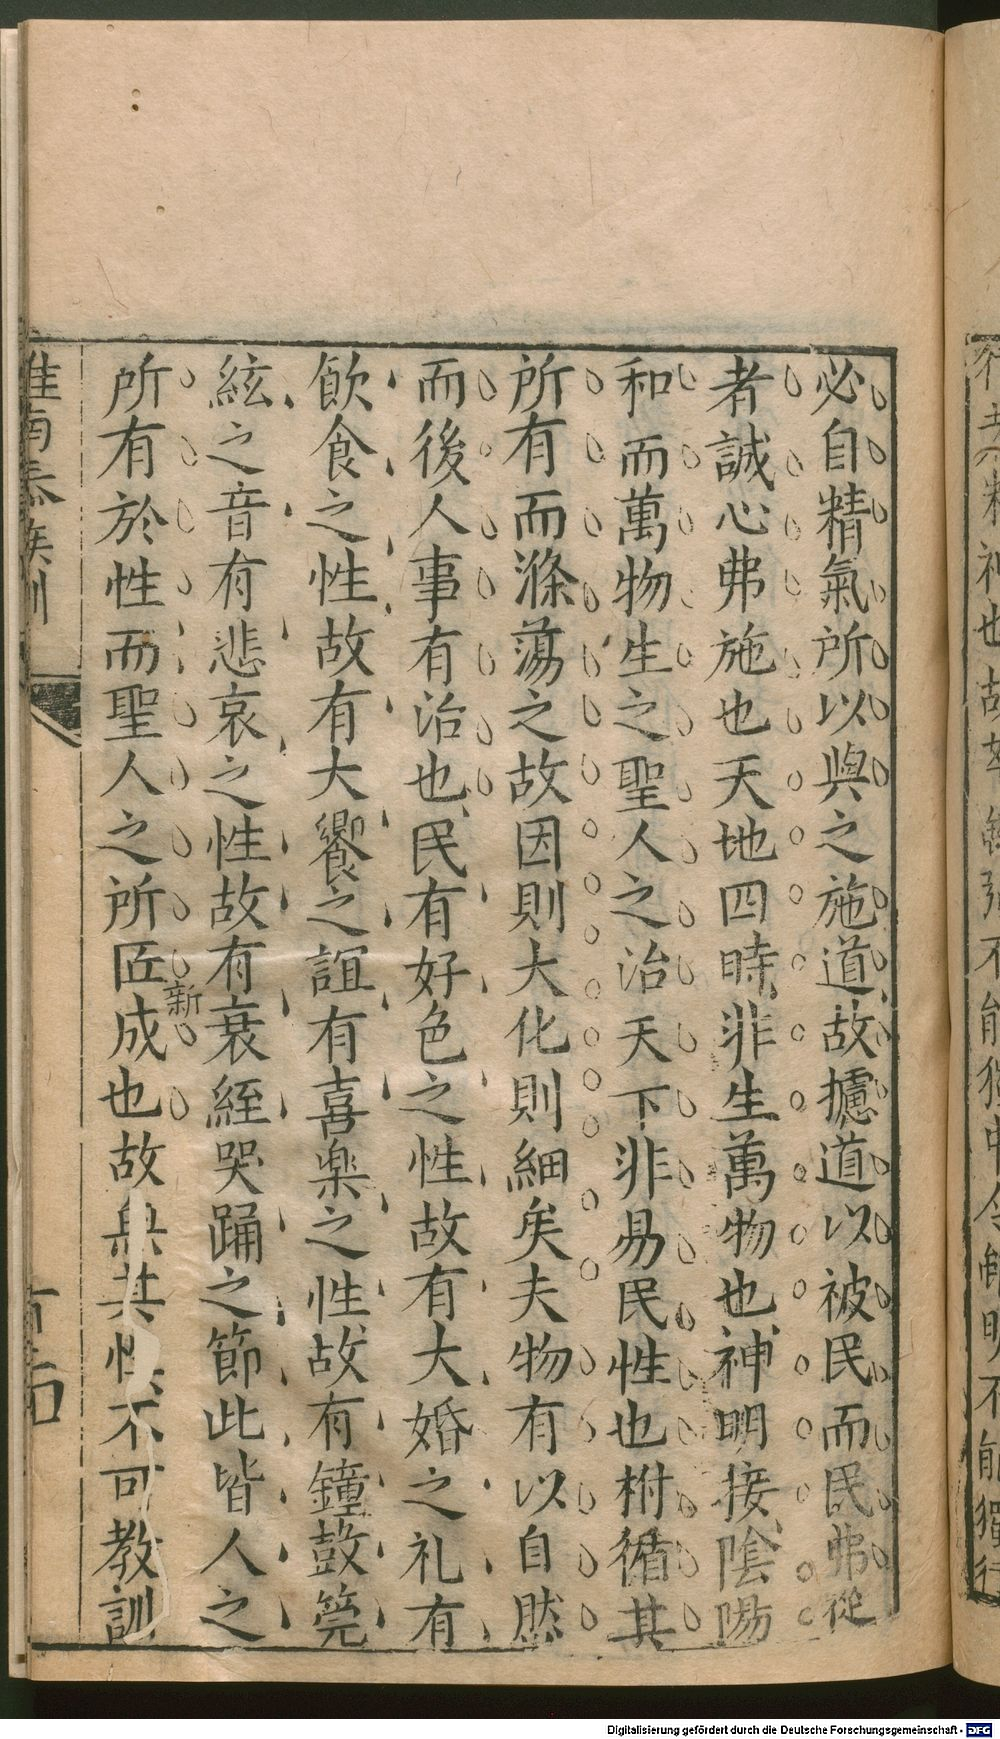 必自精氣所以與之施道故攄道以被民而民弗從
者誠心弗施也天地四時非生萬物也神明接陰陽
和而萬物生之聖人之治天下非易民性也柎循其
所有而滌蕩之故因則大化則細矣夫物有以自然
而後人事有治也民有好色之性故有大婚之礼有
飲食之性故有大饗之誼有喜楽之性故有鐘鼓筦
絃之音有悲哀之性故有衰絰哭踊之節此皆人之
所有於性而聖人之所匠成也故無其性不可教訓
新
淮南泰族訓
Digitalisierung gefördert durch die Deutsche Forschungsgemeinschaft - DFG